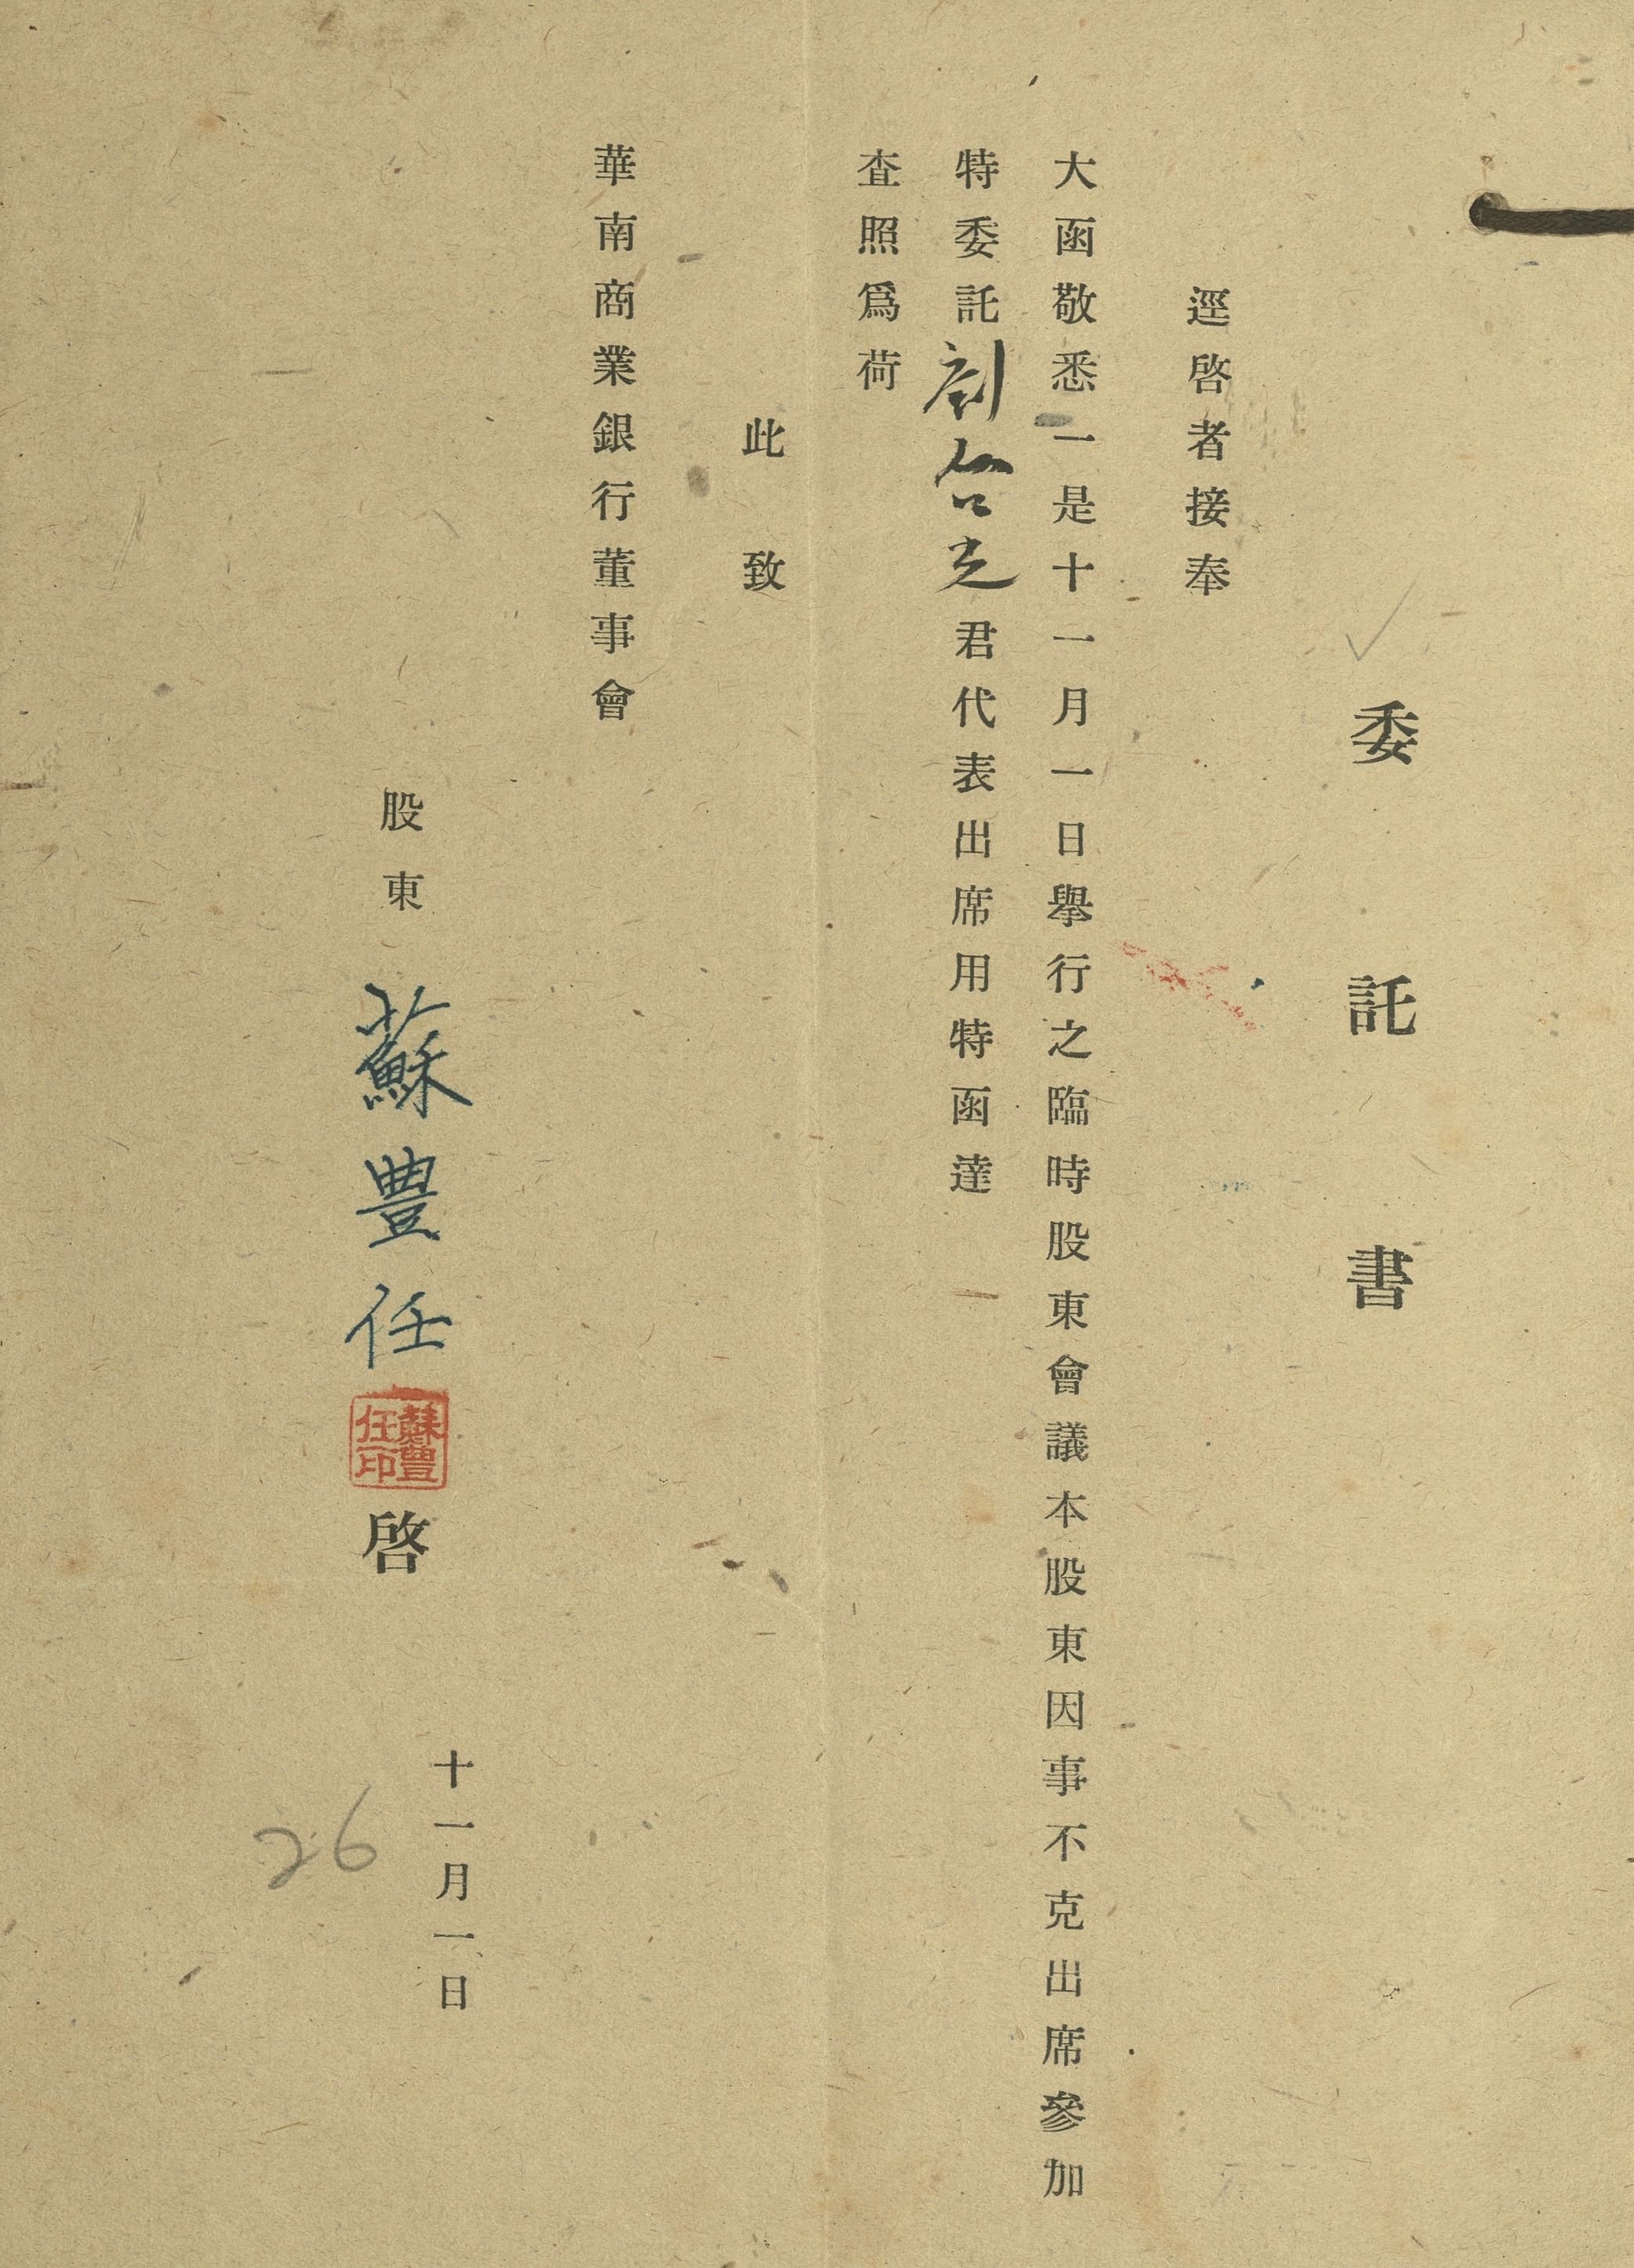 委託書
逕啓者接奉
大函敬悉一是十一月一日舉行之臨時股東會議本股東因事不克出席參加
特委託劉启光君代表出席用特函達
査照爲荷
此致
華南商業銀行董事會
十一月一日
股東 蘇豊任 啓
蘇豊任印
26